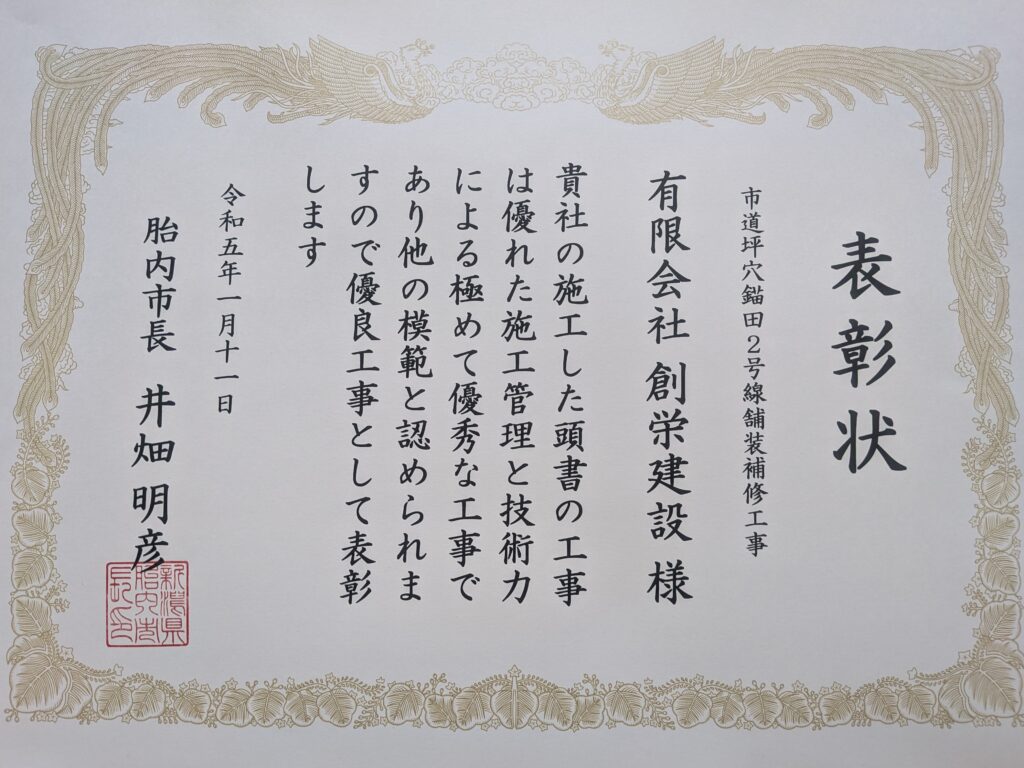 表彰状
市道坪穴錨田2号線舗装補修工事
有限会社 創栄建設 様
貴社の施工した頭書の工事
は優れた施工管理と技術力
による極めて優秀な工事で
あり他の模範と認められま
すので優良工事として表彰
します
令和五年一月十一日
胎内市長 井畑 明彦
新潟県
胎内市
長印